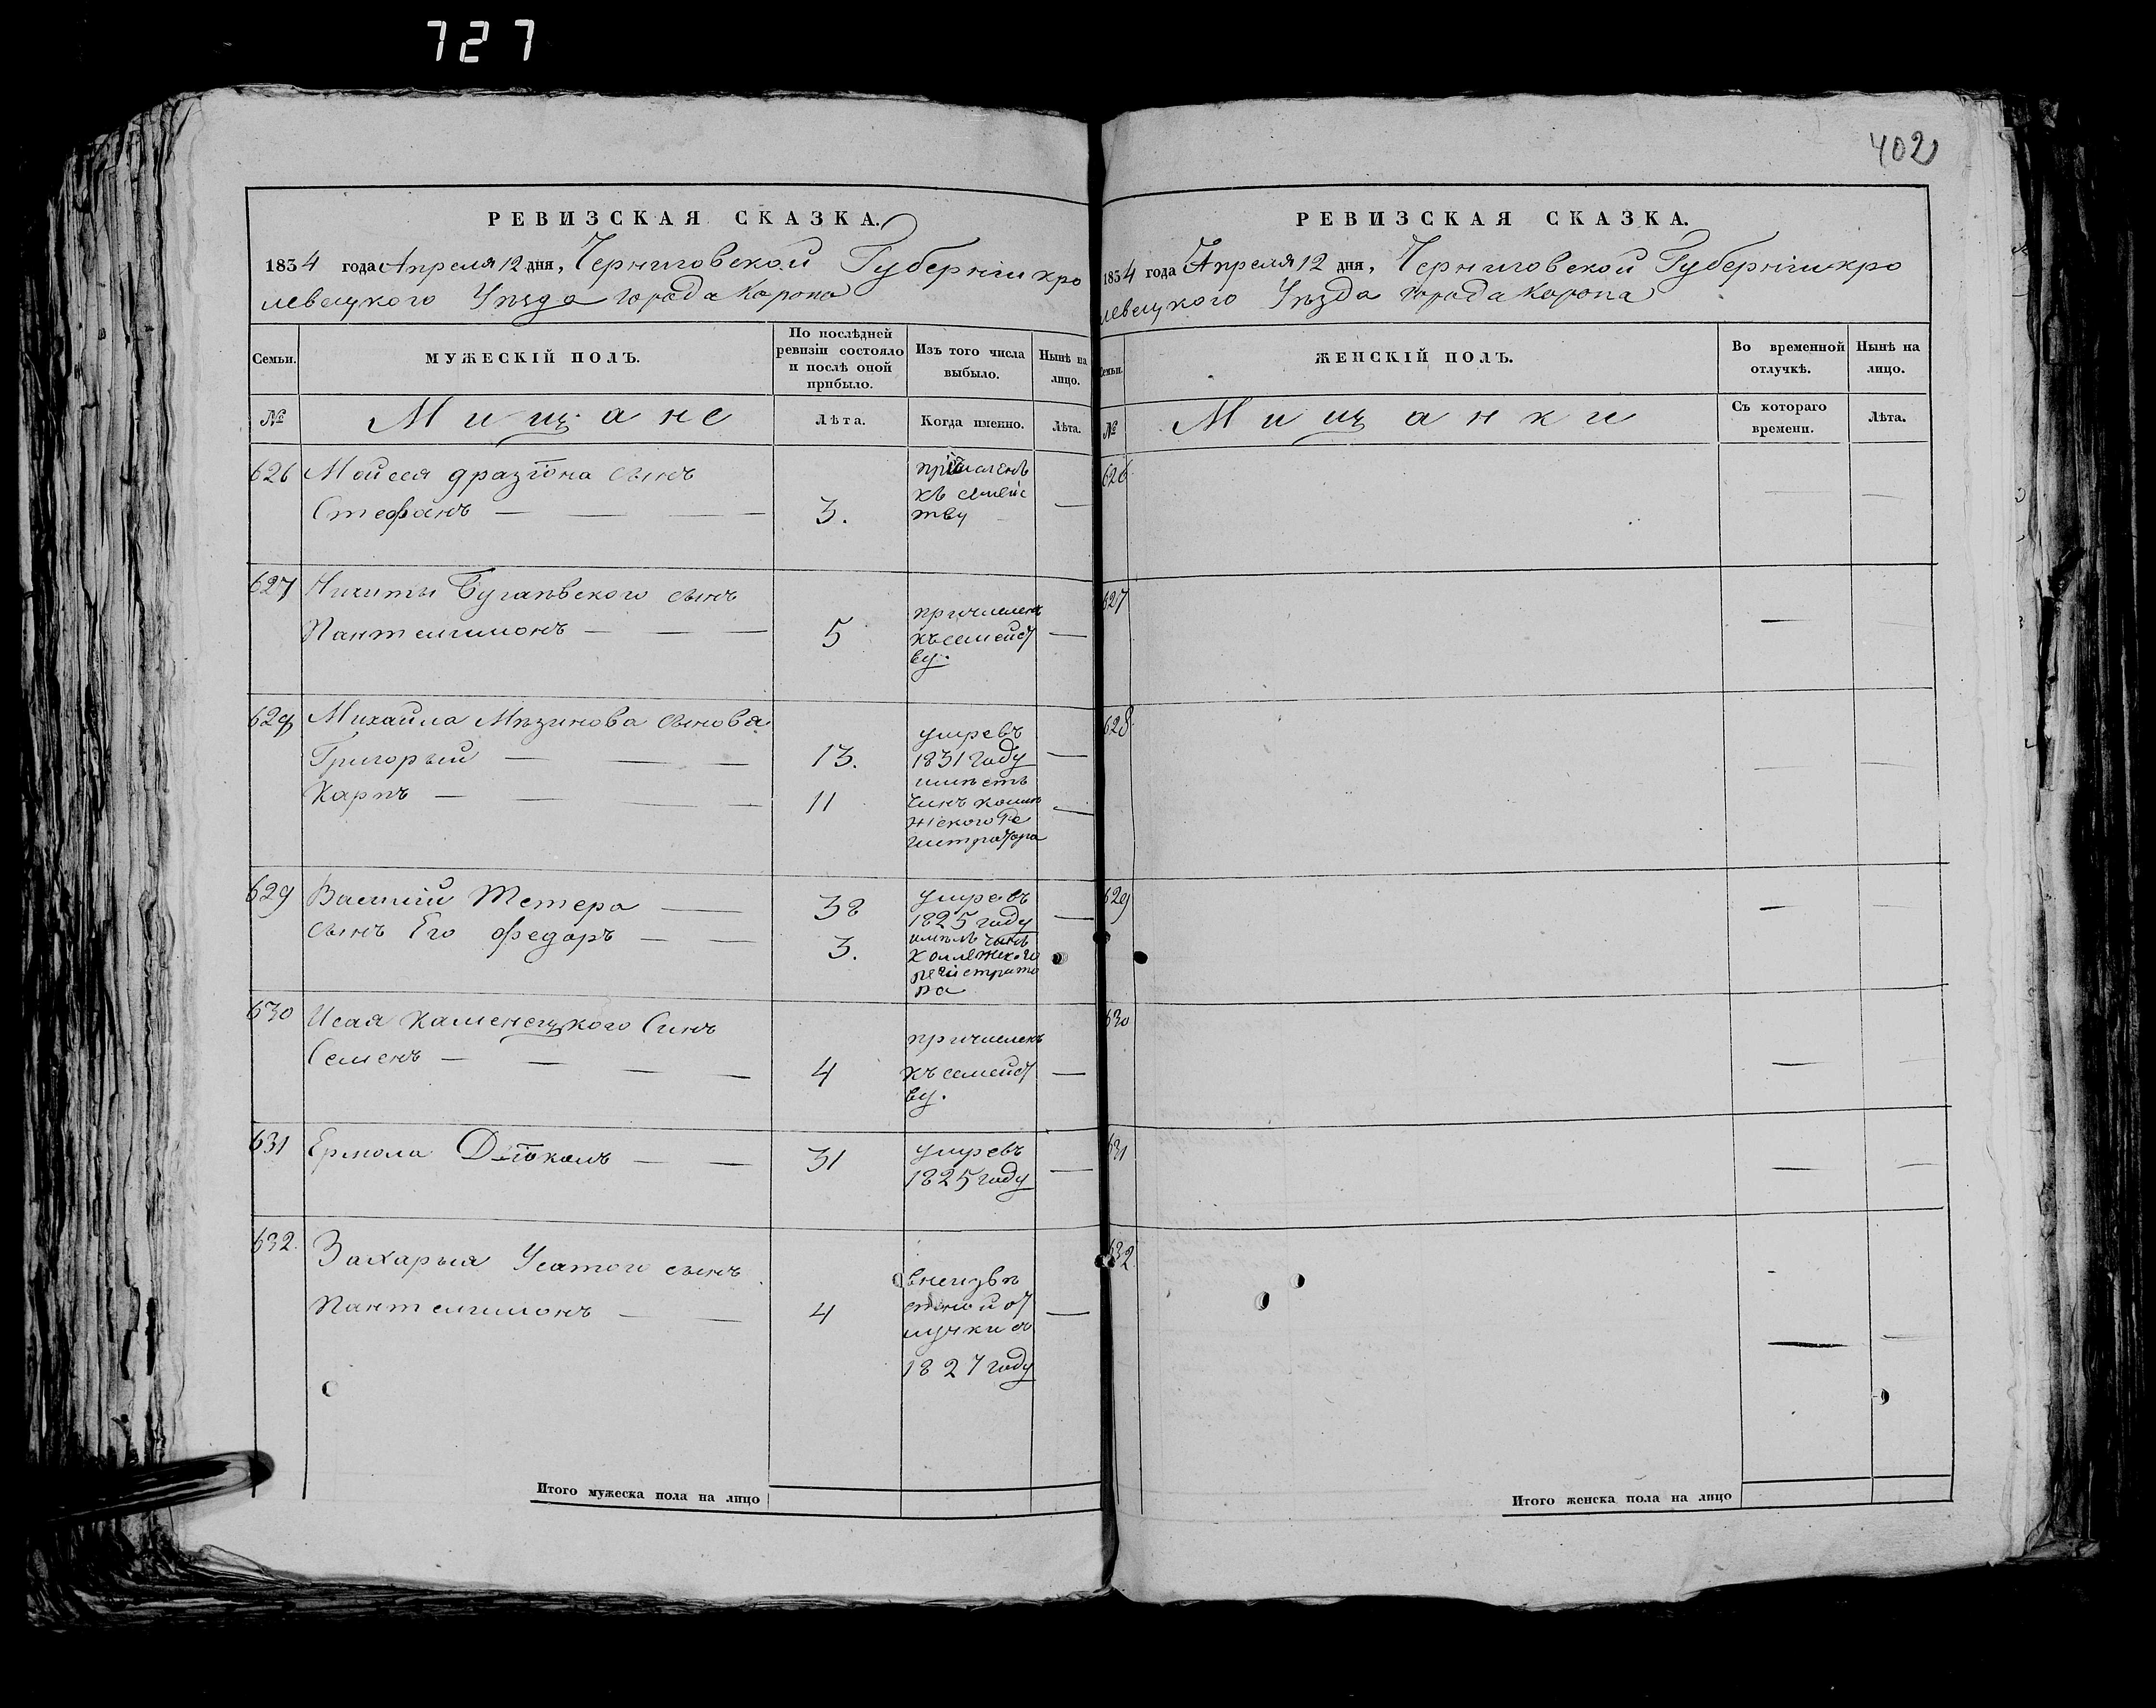 727
РЕВИЗСКАЯ СКАЗКА.
1834 года Апреля 12 дня, Черниговской Губерніи кро
левецкого Уѣзда города Коропа
Семьи.
МУЖЕСКІЙ ПОЛЪ.
По послѣдней
ревизіи состояло
и послѣ оной
прибыло.
Изъ того числа
выбыло.
Нынѣ на
лицо.
№
Мищане
Лѣта.
Когда именно.
Лѣта.
626 Мойсея сынъ
Стефанъ — — —
3.
къ семейс
тву
—
627 Никиты сынъ
Пантелимонъ — — —
5
причисленъ
къ семейст
ву.
—
628 Михайла Мѣзинова сыновя
Григорый — — —
13.
умре въ
1831 году
—
Карпъ — — — —
11
имѣетъ
чинъ колѣ
жского Ре
гистратора
—
629 Василій Тетера —
38
умре въ
1825 году
—
сынъ Его Федоръ — —
3.
имѣлъ чинъ
Коллежского
регистрато
ра
630 Исая Каменецкого Синъ
Семенъ — — — —
4
причисленъ
къ семейст
ву.
—
631 Ермола — —
31
умре въ
1825 году
—
632. Захарыя Усатого сынъ
Пантелимонъ — —
4
в неизвѣ
стной от
лучки съ
1827 году
—
Итого мужеска пола на лицо
402
РЕВИЗСКАЯ СКАЗКА.
1834 года Апреля 12 дня, Черниговской Губерніи кро
левецкого Уѣзда города Коропа
Семьи.
ЖЕНСКІЙ ПОЛЪ.
Во временной
отлучкѣ.
Нынѣ на
лицо.
№
Мищанки
Съ котораго
времени.
Лѣта.
626 — —
627 — —
628 — —
629 — —
630 — —
631 — —
632 — —
Итого женска пола на лицо